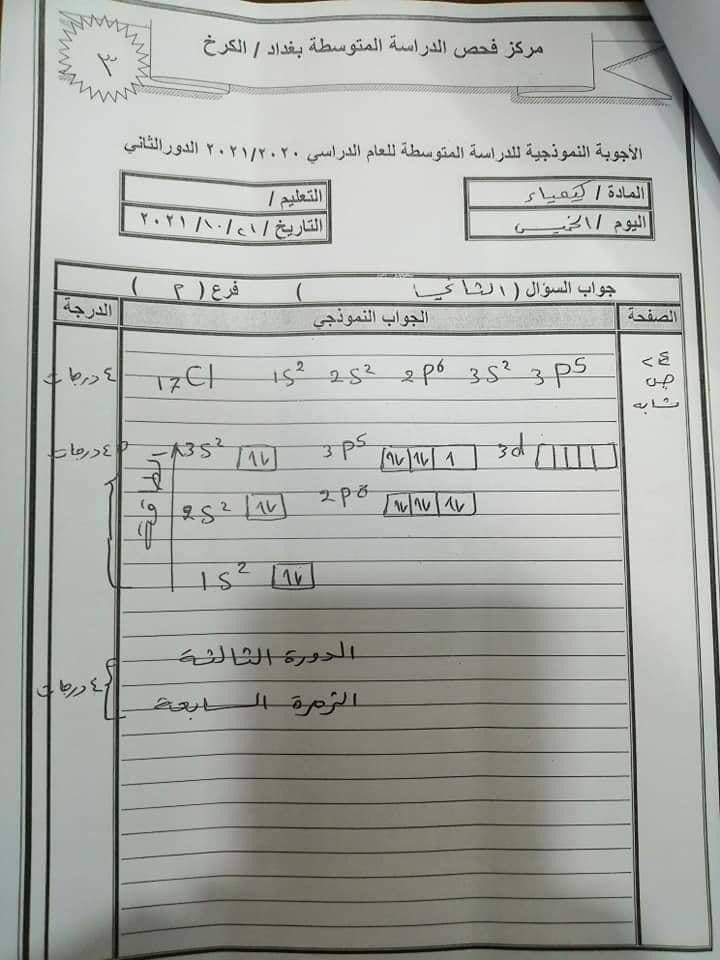 ٣
مركز فحص الدراسة المتوسطة بغداد / الكرخ
الأجوبة النموذجية للدراسة المتوسطة للعام الدراسي ٢٠٢١/٢٠٢٠ الدورالثاني
المادة / كيمياء
التعليم /
اليوم / الخميس
التاريخ / ٢١ / ١٠ / ٢٠٢١
جواب السؤال ( الثاني ) فرع ( )
الصفحة الجواب النموذجي الدرجة
17Cl 1s² 2s² 2p⁶ 3s² 3p⁵ ٤ درجات
ص
3s² 1L 3p⁵ 1L 1L 1 3d ٤ درجات
2s² 1L 2p⁶ 1L 1L 1L
1s² 1L
الدورة الثالثة
الزمرة السابعة ٤ درجات